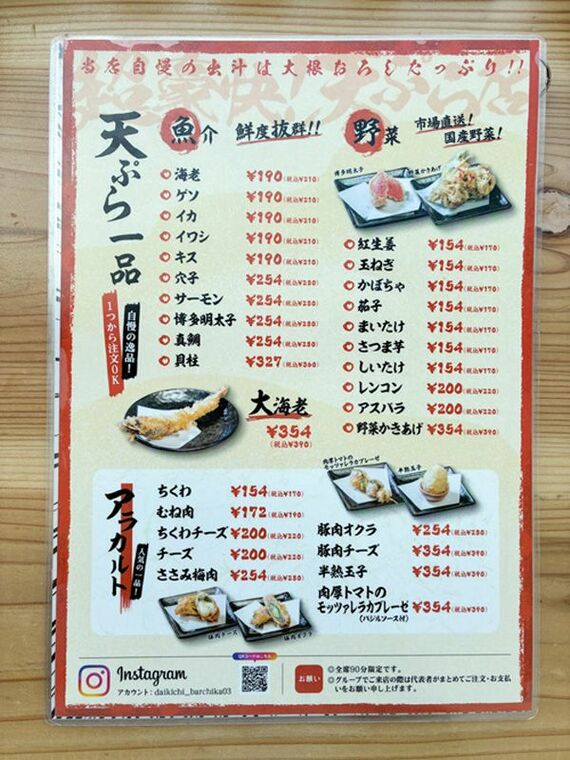 当店自慢の出汁は大根おろしたっぷり!!
天ぷら一品
自慢の逸品!
1つから注文OK
魚介 鮮度抜群!!
海老 ¥190(税込¥210)
ゲソ ¥190(税込¥210)
イカ ¥190(税込¥210)
イワシ ¥190(税込¥210)
キス ¥190(税込¥210)
穴子 ¥254(税込¥280)
サーモン ¥254(税込¥280)
博多明太子 ¥254(税込¥280)
真鯛 ¥254(税込¥280)
貝柱 ¥327(税込¥360)
大海老
¥354
(税込¥390)
野菜 市場直送!
国産野菜!
博多明太子
野菜かきあげ
紅生姜 ¥154(税込¥170)
玉ねぎ ¥154(税込¥170)
かぼちゃ ¥154(税込¥170)
茄子 ¥154(税込¥170)
まいたけ ¥154(税込¥170)
さつま芋 ¥154(税込¥170)
しいたけ ¥154(税込¥170)
レンコン ¥200(税込¥220)
アスパラ ¥200(税込¥220)
野菜かきあげ ¥354(税込¥390)
アラカルト
人気の一品!
ちくわ ¥154(税込¥170)
むね肉 ¥172(税込¥190)
ちくわチーズ ¥200(税込¥220)
チーズ ¥200(税込¥220)
ささみ梅肉 ¥254(税込¥280)
豚肉チーズ
豚肉オクラ
肉厚トマトの
モッツァレラカプレーゼ
半熟玉子
豚肉オクラ ¥254(税込¥280)
豚肉チーズ ¥354(税込¥390)
半熟玉子 ¥354(税込¥390)
肉厚トマトの
モッツァレラカプレーゼ ¥354(税込¥390)
(バジルソース付)
Instagram
アカウント: daikichi_barchika03
QRコードはこちら
お願い
◎全席90分限定です。
◎グループでご来店の際は代表者がまとめてご注文・お支払
いをお願い申し上げます。